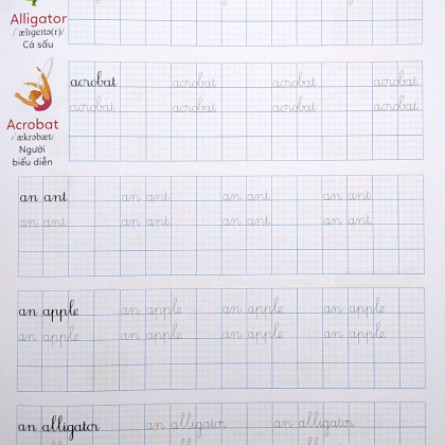 Alligator
/ˈæligeitə(r)/
Cá sấu
acrobat acrobat acrobat acrobat
acrobat acrobat acrobat acrobat
Acrobat
/ˈækrəbæt/
Người
biểu diễn
an ant an ant an ant an ant
an ant an ant an ant an ant
an apple an apple an apple an apple
an apple an apple an apple an apple
an alligator an alligator an alligator